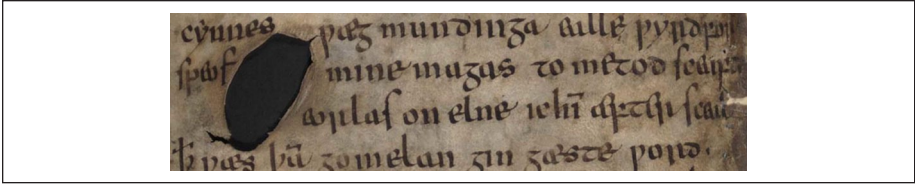 cynnes ƿæg mundinga ealle ƿyrd for
speof mine magas to metod sceafta
eorlas on elne ic hī æfter sceal
ꝥ ƿæs þā gomelan gin gæste ƿord.